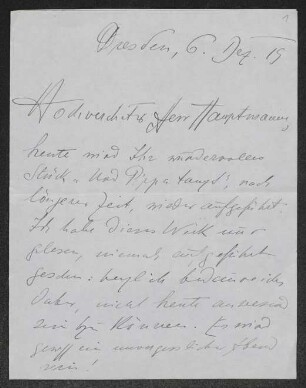 1
Dresden, 6. Dez. 19
Hochverehrter Herr Hauptmann,
heute wird Ihr wundervolles
Stück „Und Pippa tanzt“, nach
längerer Zeit, wieder aufgeführt.
Ich habe dieses Werk nur
gelesen, niemals aufgeführt
gesehen: herzlich bedaure ich
daher, nicht heute anwesend
sein zu können. Es wird
gewiß ein unvergesslicher Abend
sein!